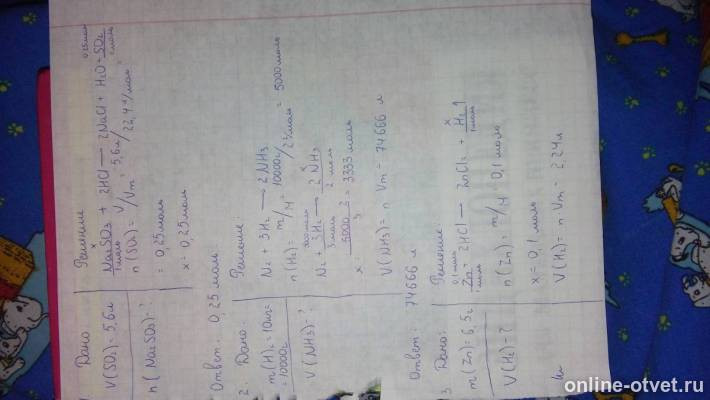 1 Дано
V(SO₂) = 5,6л
n(Na₂SO₃) - ?
Решение
x 0,25моль
Na₂SO₃ + 2HCl → 2NaCl + H₂O + SO₂
1моль 1моль
n(SO₂) = V/Vm = 5,6л/22,4л/моль =
= 0,25моль
x = 0,25моль
Ответ: 0,25 моль
2. Дано:
m(H)₂ = 10кг =
= 10000г
V(NH₃) - ?
Решение:
N₂ + 3H₂ → 2NH₃
n(H₂) = m/M = 10000г/2г/моль = 5000 моль
5000моль x
N₂ + 3H₂ → 2NH₃
3 моль 2 моль
x = 5000·2/3 = 3333 моль
V(NH₃) = n Vm = 74666 л
Ответ: 74666 л
3 Дано:
m(Zn) = 6,5г
V(H₂) - ?
Решение:
0,1 моль x
Zn + 2HCl → ZnCl₂ + H₂↑
1моль 1моль
n(Zn) = m/M = 0,1 моль
x = 0,1 моль
V(H₂) = n Vm = 2,24л
online-otvet.ru